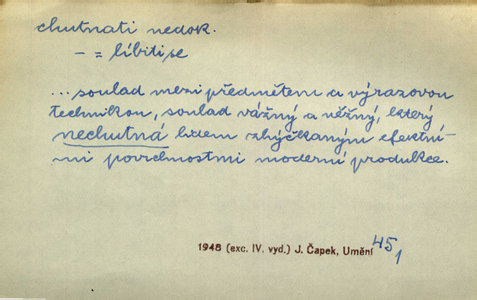 chutnati nedok.
– = líbiti se
... soulad mezi předmětem a výrazovou
technikou, soulad vážný a něžný, který
nechutná lidem zhýčkaným efektní-
mi povrchnostmi moderní produkce.
1948 (exc. IV. vyd.) J. Čapek, Umění 45,1